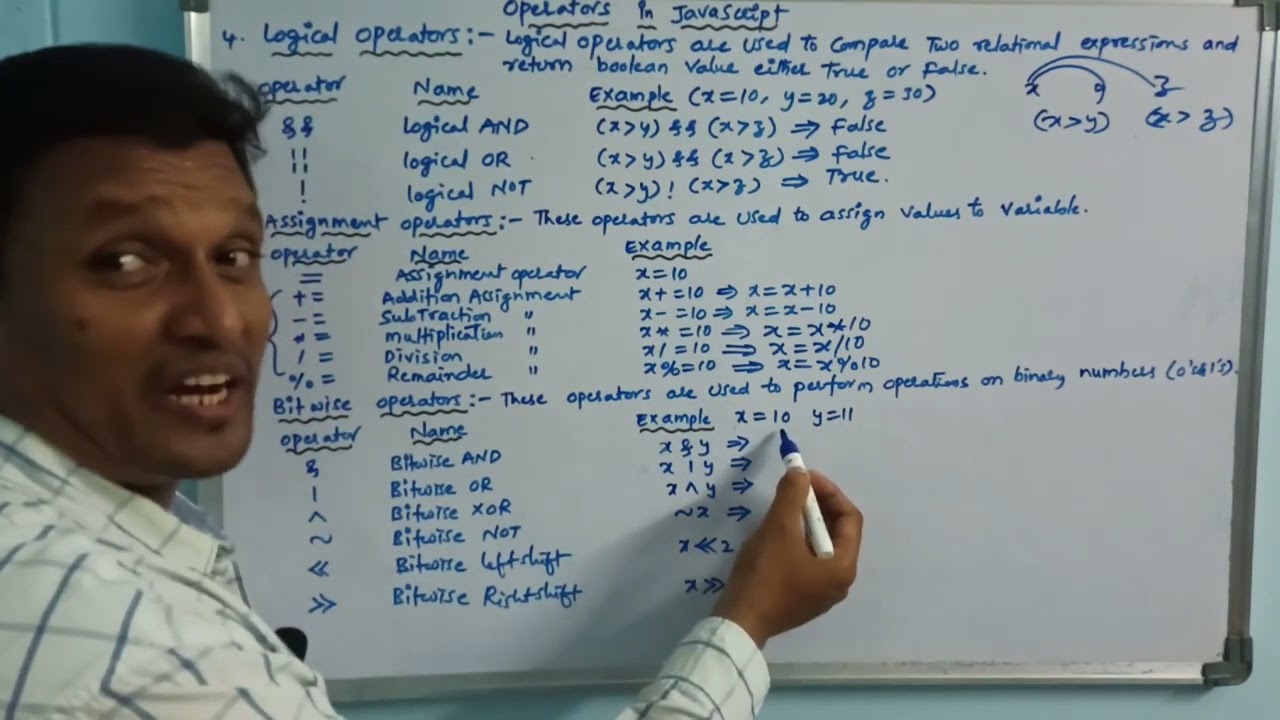 Operators in JavaScript
4. Logical operators:- Logical operators are used to compare Two relational expressions and
return boolean value either True or False.
operator Name Example (x=10, y=20, z=30)
x y z
(x>y) (x>z)
&& logical AND (x>y) && (x>z) ⇒ False
|| logical OR (x>y) && (x>z) ⇒ False
! logical NOT (x>y) ! (x>z) ⇒ True.
Assignment operators:- These operators are used to assign values to variable.
operator Name Example
= Assignment operator x=10
+= Addition Assignment x+=10 ⇒ x=x+10
-= Subtraction " x-=10 ⇒ x=x-10
*= multiplication " x*=10 ⇒ x=x*10
/= Division " x/=10 ⇒ x=x/10
%= Remainder " x%=10 ⇒ x=x%10
Bitwise operators:- These operators are used to perform operations on binary numbers (0's&1's).
operator Name Example x=10 y=11
& Bitwise AND x&y ⇒
| Bitwise OR x|y ⇒
^ Bitwise XOR x^y ⇒
~ Bitwise NOT ~x ⇒
<< Bitwise leftshift x<<2
>> Bitwise Rightshift x>>